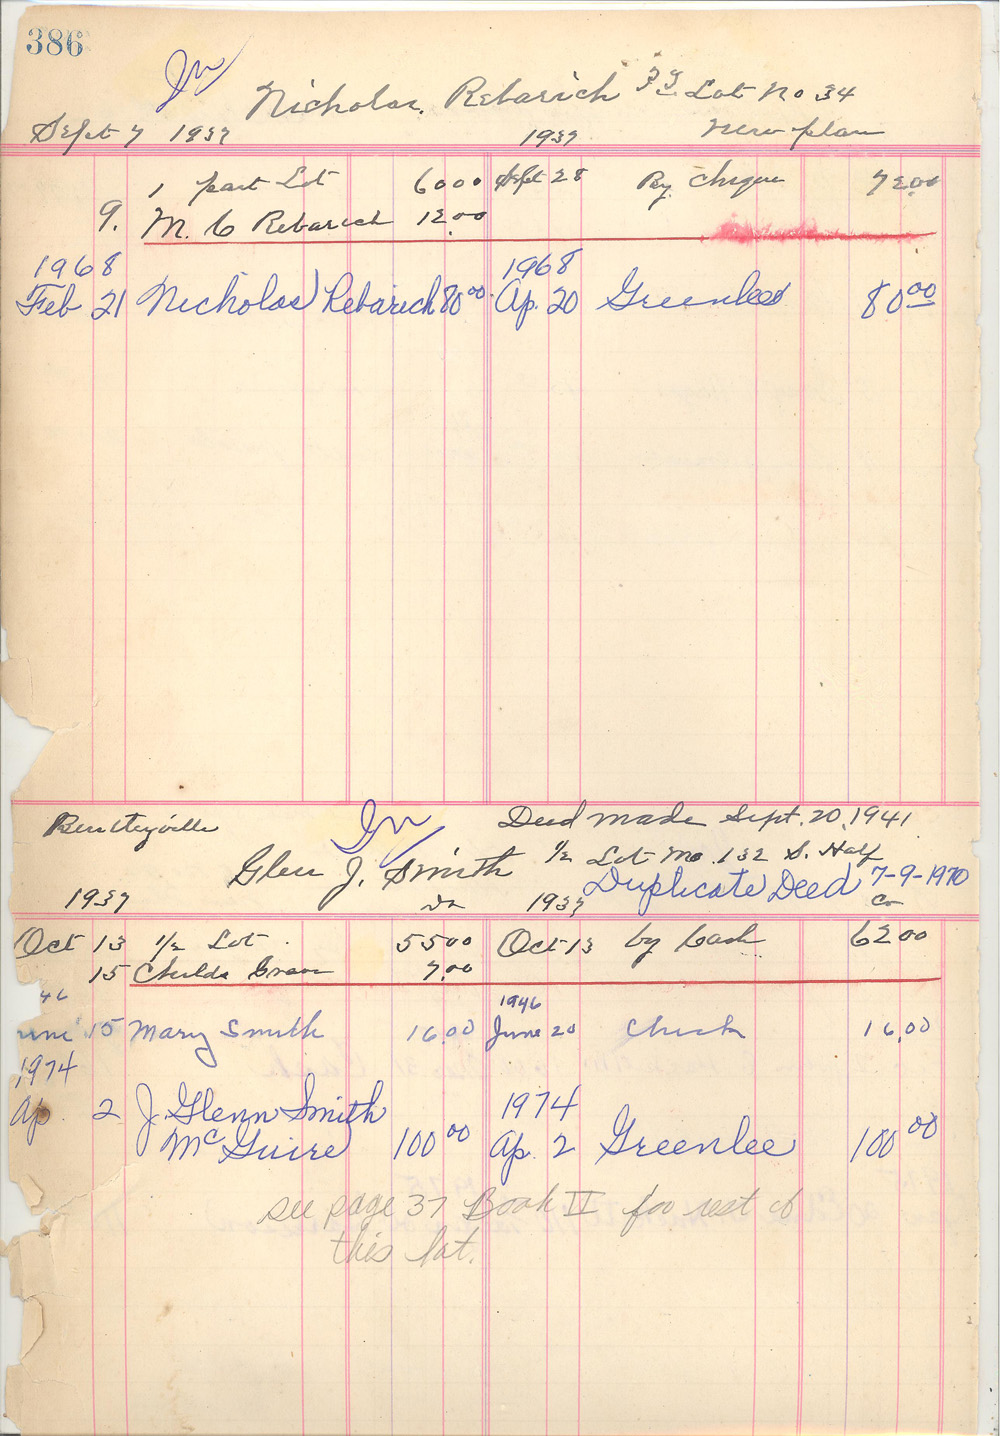 386
In
Nicholas Rebarich Lot No 34
Sept 7 1937 1937 New plan
1 part Lot 60 00 Sept 28 By Cheque 72.00
9. M. C Rebarich 12.00
1968 1968
Feb 21 Nicholas Rebarich 80 00 Ap. 20 Greenlee 80 00
Bentleyville In Deed made Sept. 20, 1941
Glen J. Smith 1/2 Lot No 132 S. Half
Duplicate Deed 7-9-1970
1937 Dr 1937 Cr
Oct 13 1/2 Lot 55 00 Oct 13 by Cash 62 00
15 Childs Grave 7.00
46 1946
une 15 Mary Smith 16.00 June 20 Check 16.00
1974
Ap 2 J. Glenn Smith 1974
McGuire 100 00 Ap. 2 Greenlee 100 00
see page 37 Book II for rest of
this lot.